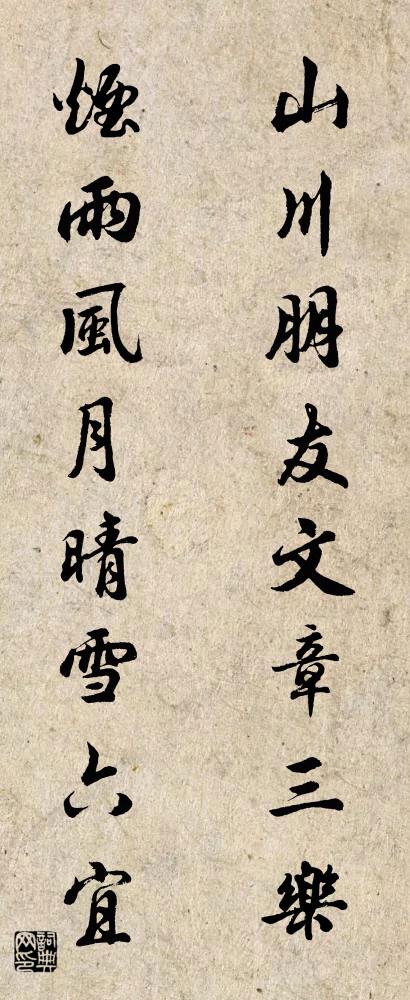 山川朋友文章三樂
煙雨風月晴雪六宜
詞典网印